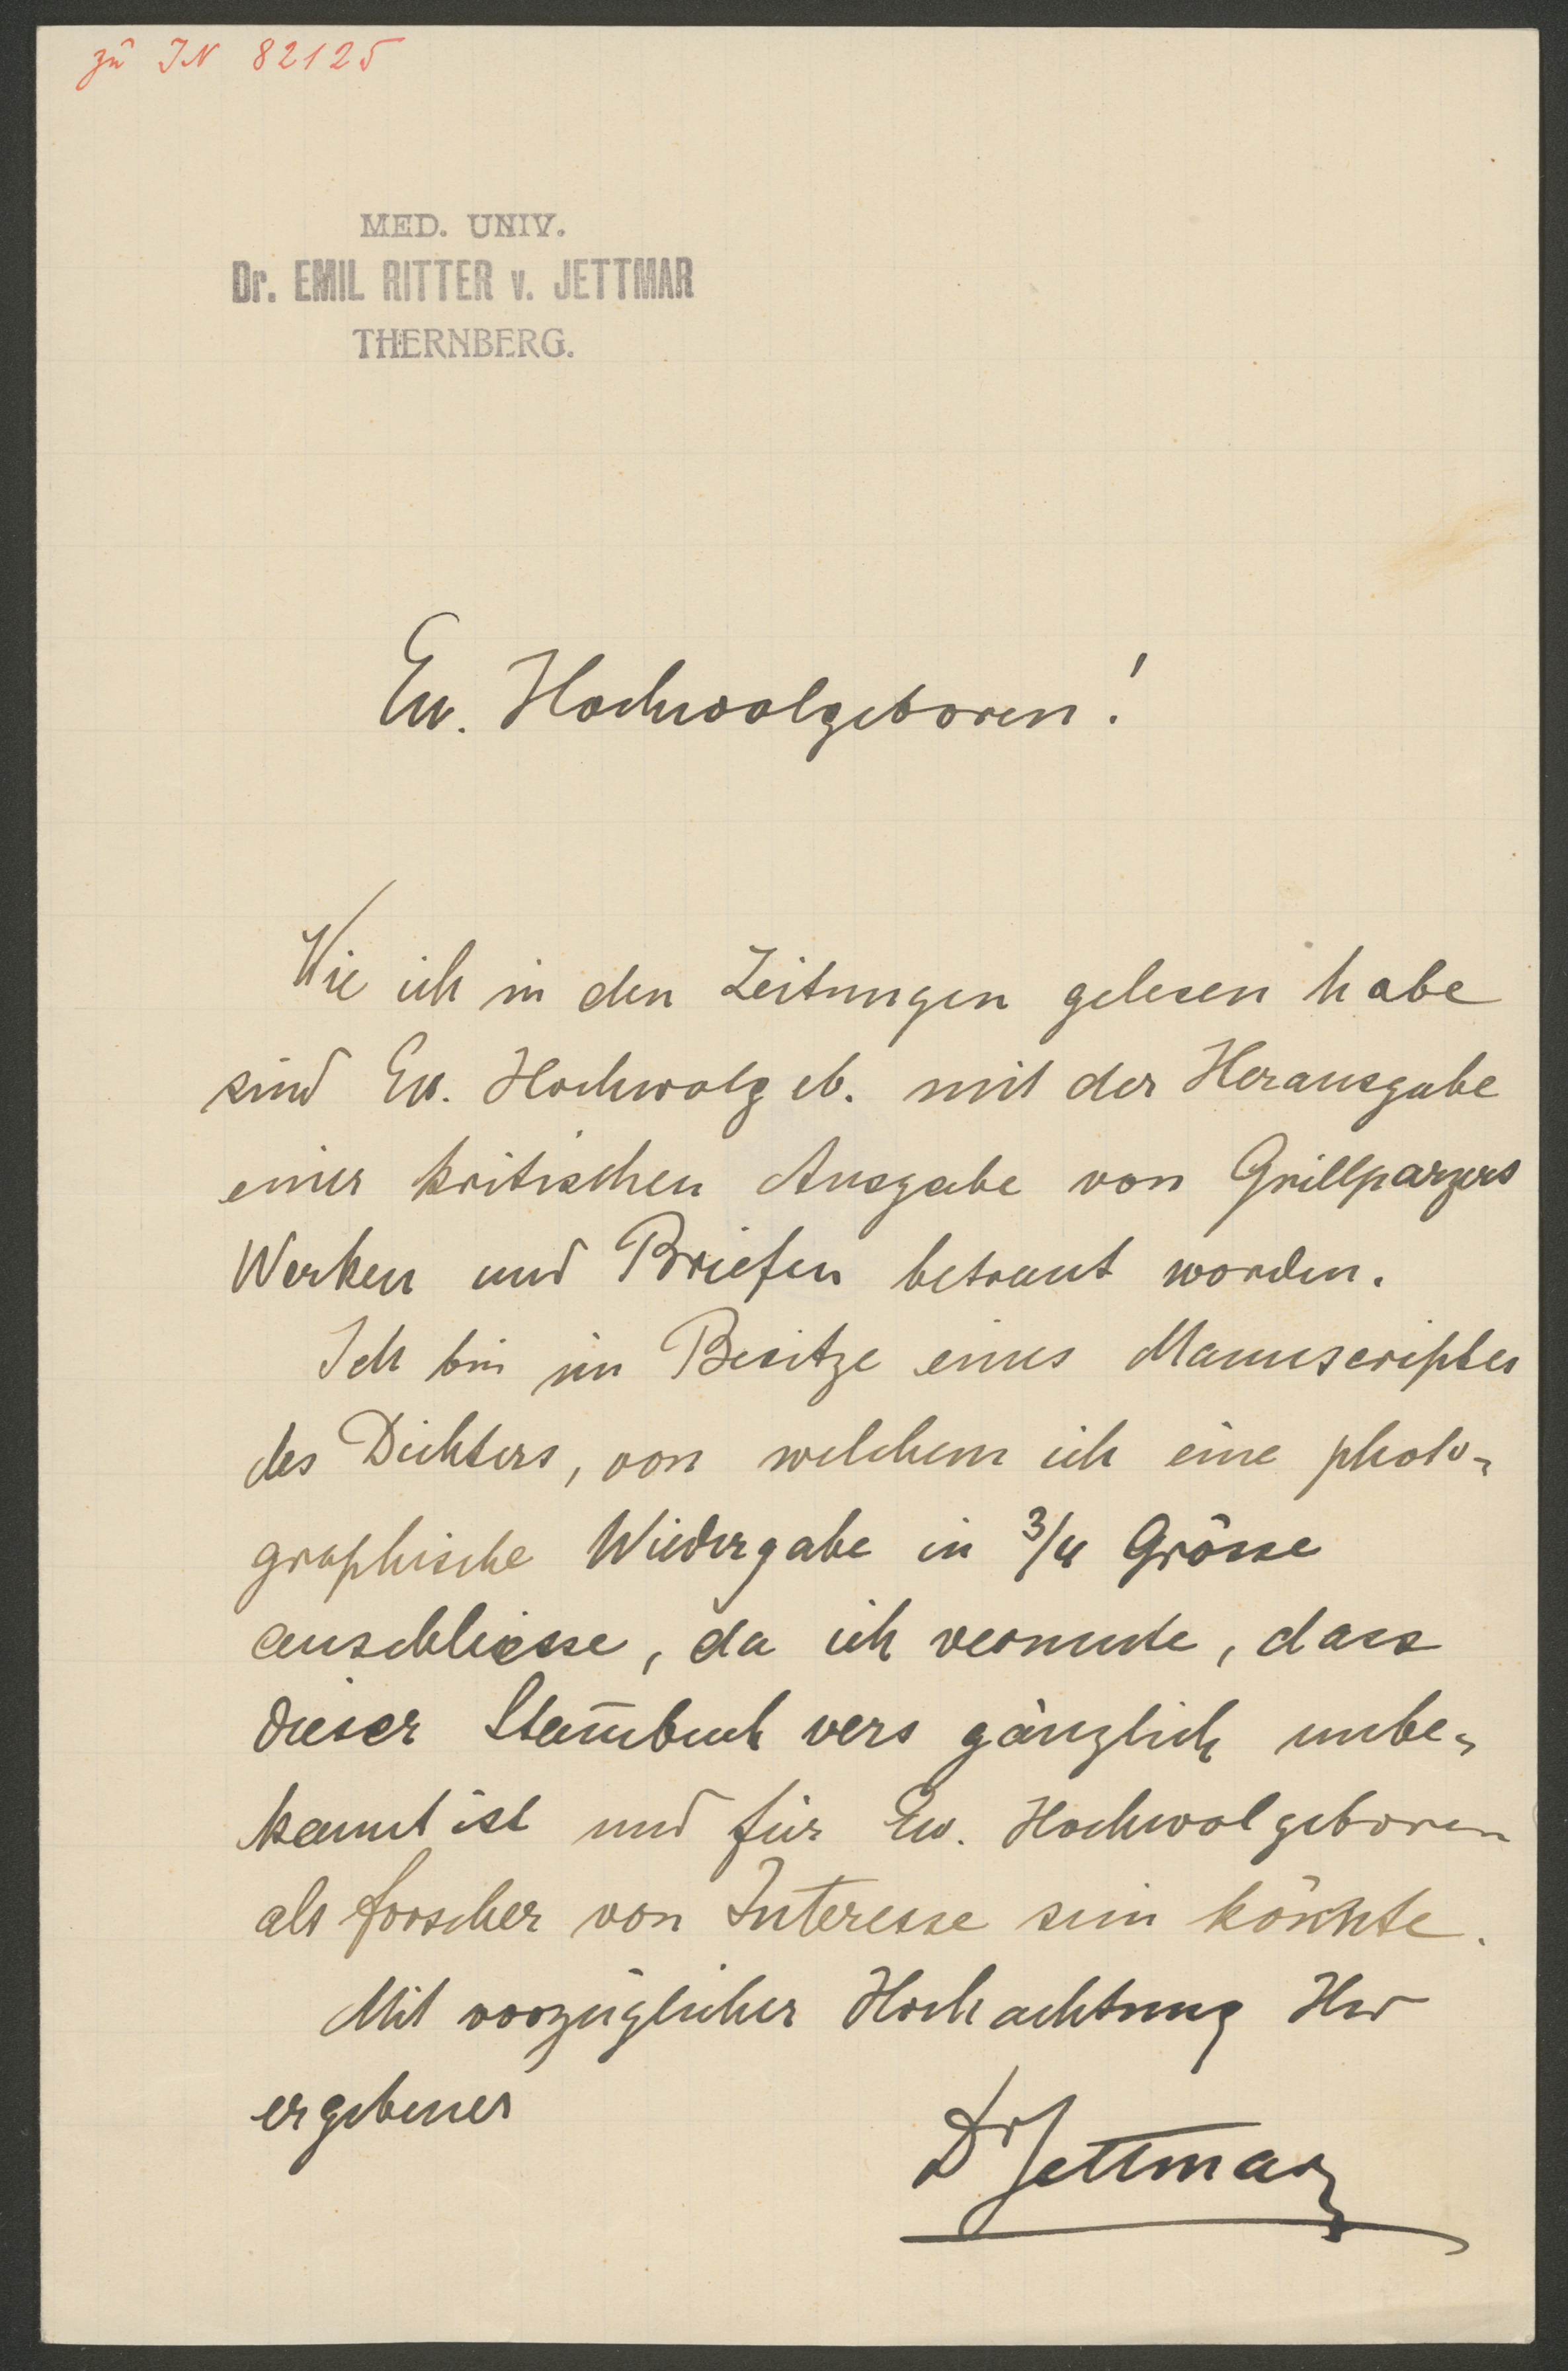 zu IN 82125
MED. UNIV.
Dr. EMIL RITTER v. JETTMAR
THERNBERG.
Ew. Hochwolgeboren!
Wie ich in den Zeitungen gelesen habe
sind Ew. Hochwolgeb. mit der Herausgabe
einer kritischen Ausgabe von Grillparzers
Werken und Briefen betraut worden.
Ich bin im Besitze eines Manuscriptes
des Dichters, von welchem ich eine photo-
graphische Wiedergabe in 3/4 Grösse
anschliesse, da ich vermute, dass
dieser Stam̅buch vers gänzlich unbe-
kannt ist und für Ew. Hochwolgeboren
als Forscher von Interesse sein könnte.
Mit vorzüglicher Hochachtung Ihr
ergebener
Dr Jettmar